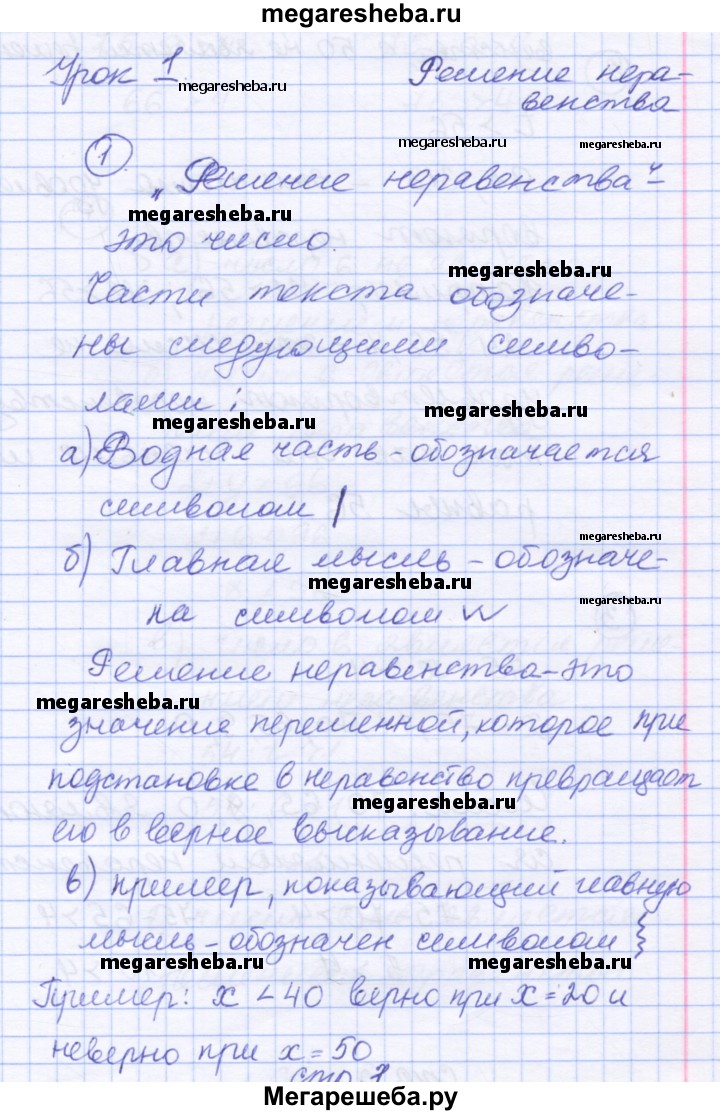 megaresheba.ru
Урок 1 Решение нера-
megaresheba.ru
венства
megaresheba.ru
megaresheba.ru
1
"Решение неравенства"-
megaresheba.ru
это число.
megaresheba.ru
Части текста обозначе-
ны следующими симво-
megaresheba.ru
лами:
megaresheba.ru
а) Водная часть - обозначается
символом /
megaresheba.ru
б) Главная мысль - обозначе-
megaresheba.ru
megaresheba.ru
на символом W
Решение неравенства - это
megaresheba.ru
значение переменной, которое при
подстановке в неравенство превращает
megaresheba.ru
его в верное высказывание.
в) пример, показывающий главную
мысль - обозначен символом {
megaresheba.ru megaresheba.ru
Пример: x < 40 верно при x = 20 и
неверно при x = 50
Мегарешеба.ру